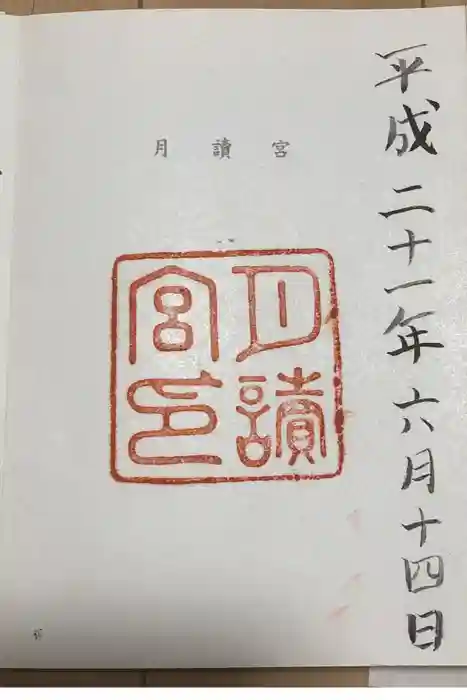 平成二十一年六月十四日
月讀宮
月讀
宮印